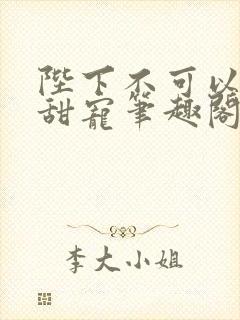 陛下不可以
甜宠笔趣阁
李大小姐